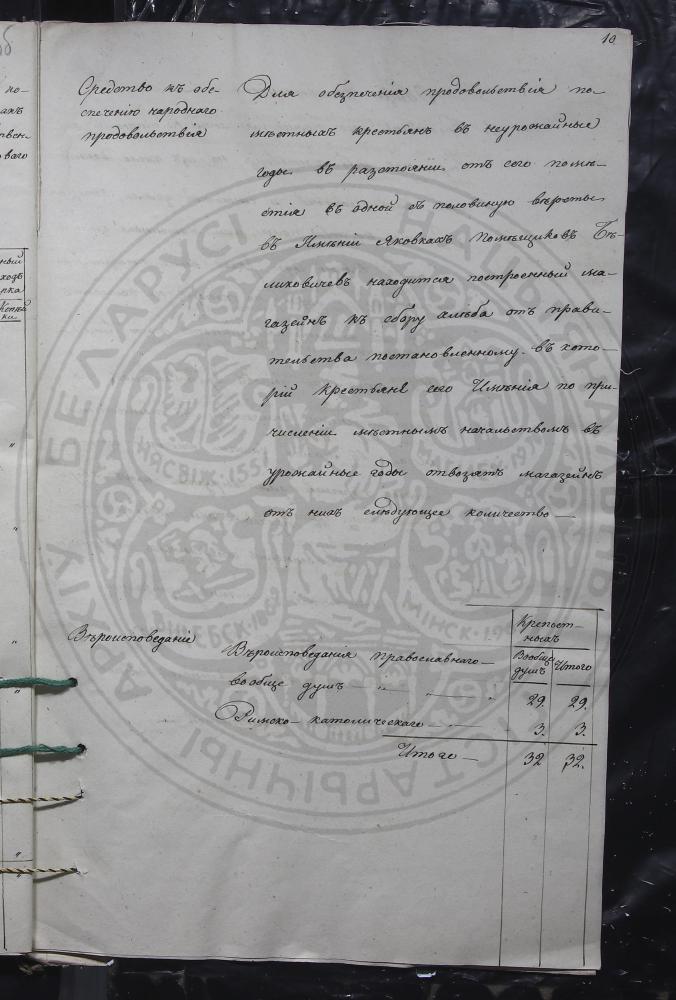 10
Средство къ обе-
спеченію народнаго
продовольствія
Для обезпеченія продовольствія по-
мѣстныхъ крестьянъ въ неурожайные
годы въ разстояніи отъ сего помѣ-
стія въ одной съ половиную версты
въ Имѣніи Яковкахъ помѣщиковъ Бѣ-
ликовичевъ находится построенный ма-
газейнъ къ сбору хлѣба отъ прави-
тельства постановленному. въ кото-
рій крестьяне сего Имѣнія по при-
численіи мѣстнымъ начальствомъ въ
урожайные годы отвозятъ магазейнъ
отъ нихъ слѣдующее количество —
Вѣроисповеданіе
Крепост-
ныхъ
Вообще душъ
Итого
Вѣроисповеданія православнаго —
вообще душъ — „ — „ 29. 29.
Римско-католическаго — „ 3. 3.
Итого — 32 32.
ный
ходъ
рка
Копей
ки
БЕЛАРУСІ
НЯСВІЖ
МІНСК